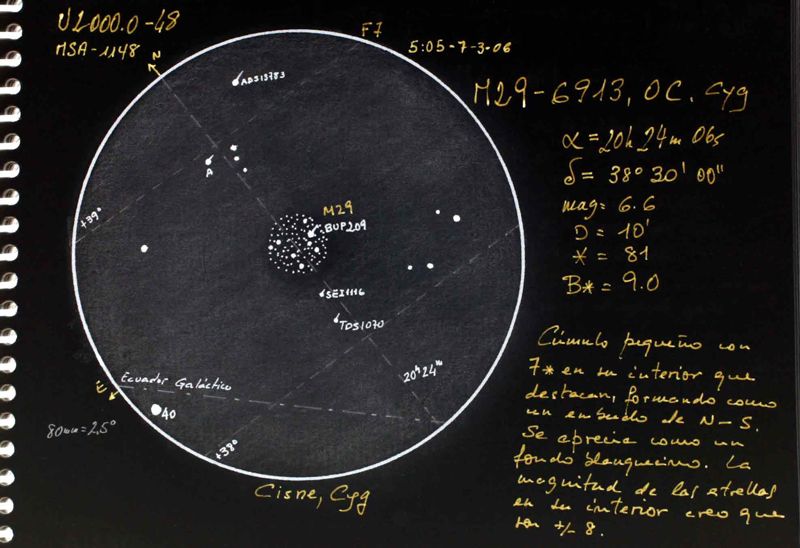 U2000.0-48
MSA-1148
F7
5:05-7-3-06
M29-6913, OC. Cyg
α = 20h 24m 06s
δ = 38° 30' 00"
mag = 6.6
D = 10'
* = 81
B* = 9.0
N
ADS13783
A
+39°
M29
BUP209
SEI1116
TDS1070
20h24m
E
Ecuador Galáctico
40
80mm=2,5°
+38°
Cisne, Cyg
Cúmulo pequeño con
7* en su interior que
destacan, formando como
un embudo de N-S.
Se aprecia como un
fondo blanquecino. La
magnitud de las estrellas
en su interior creo que
son +/- 8.